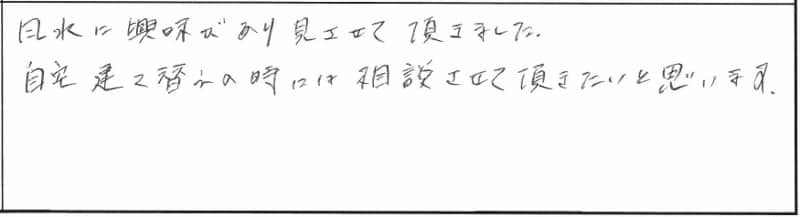 風水に興味があり見させて頂きました.
自宅建て替えの時には相談させて頂きたいと思います.